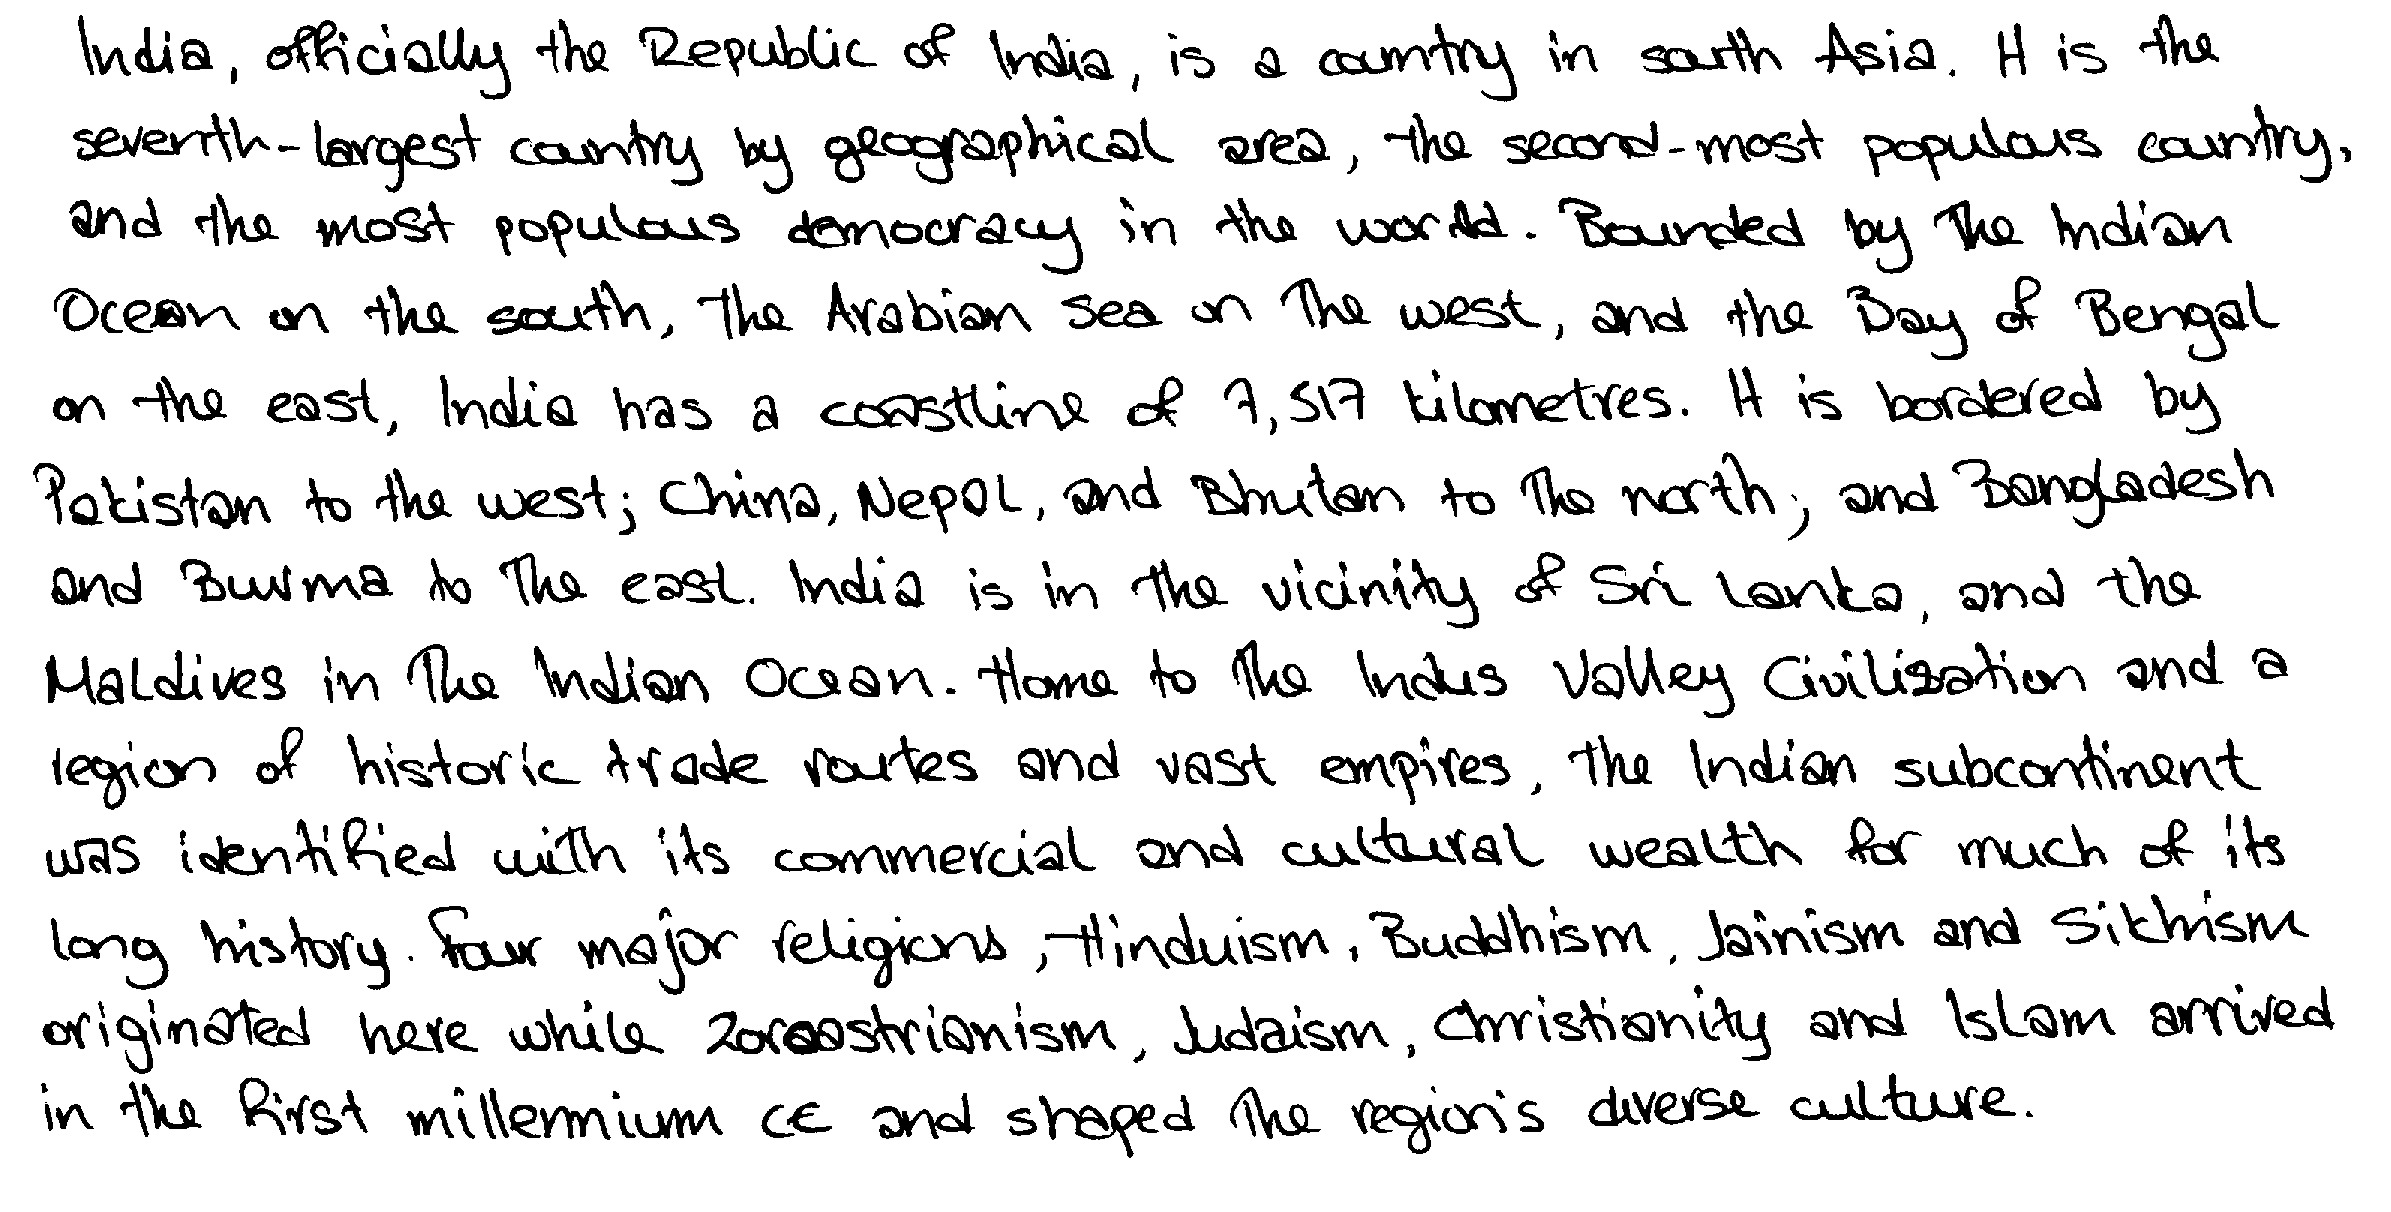 India, officially the Republic of India, is a country in south Asia. It is the
seventh-largest country by geographical area, the second-most populous country,
and the most populous democracy in the world. Bounded by the Indian
Ocean on the south, the Arabian Sea on the west, and the Bay of Bengal
on the east, India has a coastline of 7,517 kilometres. It is bordered by
Pakistan to the west; China, Nepal, and Bhutan to the north; and Bangladesh
and Burma to the east. India is in the vicinity of Sri Lanka, and the
Maldives in the Indian Ocean. Home to the Indus Valley Civilisation and a
region of historic trade routes and vast empires, the Indian subcontinent
was identified with its commercial and cultural wealth for much of its
long history. Four major religions, Hinduism, Buddhism, Jainism and Sikhism
originated here while Zoroastrianism, Judaism, Christianity and Islam arrived
in the first millennium CE and shaped the region's diverse culture.